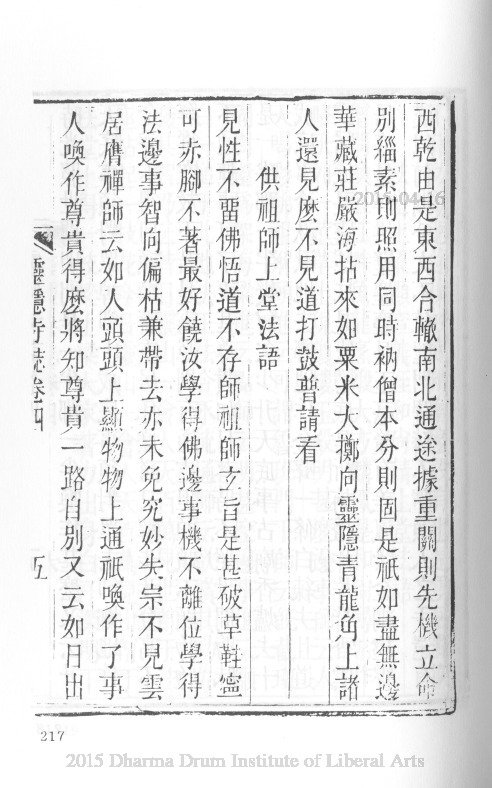 西乾由是東西合轍南北通途據重關則先機立命
別緇素則照用同時衲僧本分則固是祇如盡無邊
華藏莊嚴海拈來如粟米大擲向靈隱青龍角上諸
人還見麼不見道打鼓普請看
供祖師上堂法語
見性不畱佛悟道不存師祖師玄旨是甚破草鞋寧
可赤腳不著最好饒汝學得佛邊事機不離位學得
法邊事智向偏枯兼帶去亦未免究妙失宗不見雲
居膺禪師云如人頭頭上顯物物上通祇喚作了事
人喚作尊貴得麼將知尊貴一路自別又云如日出
靈隱寺誌卷四
五
217
2015 Dharma Drum Institute of Liberal Arts